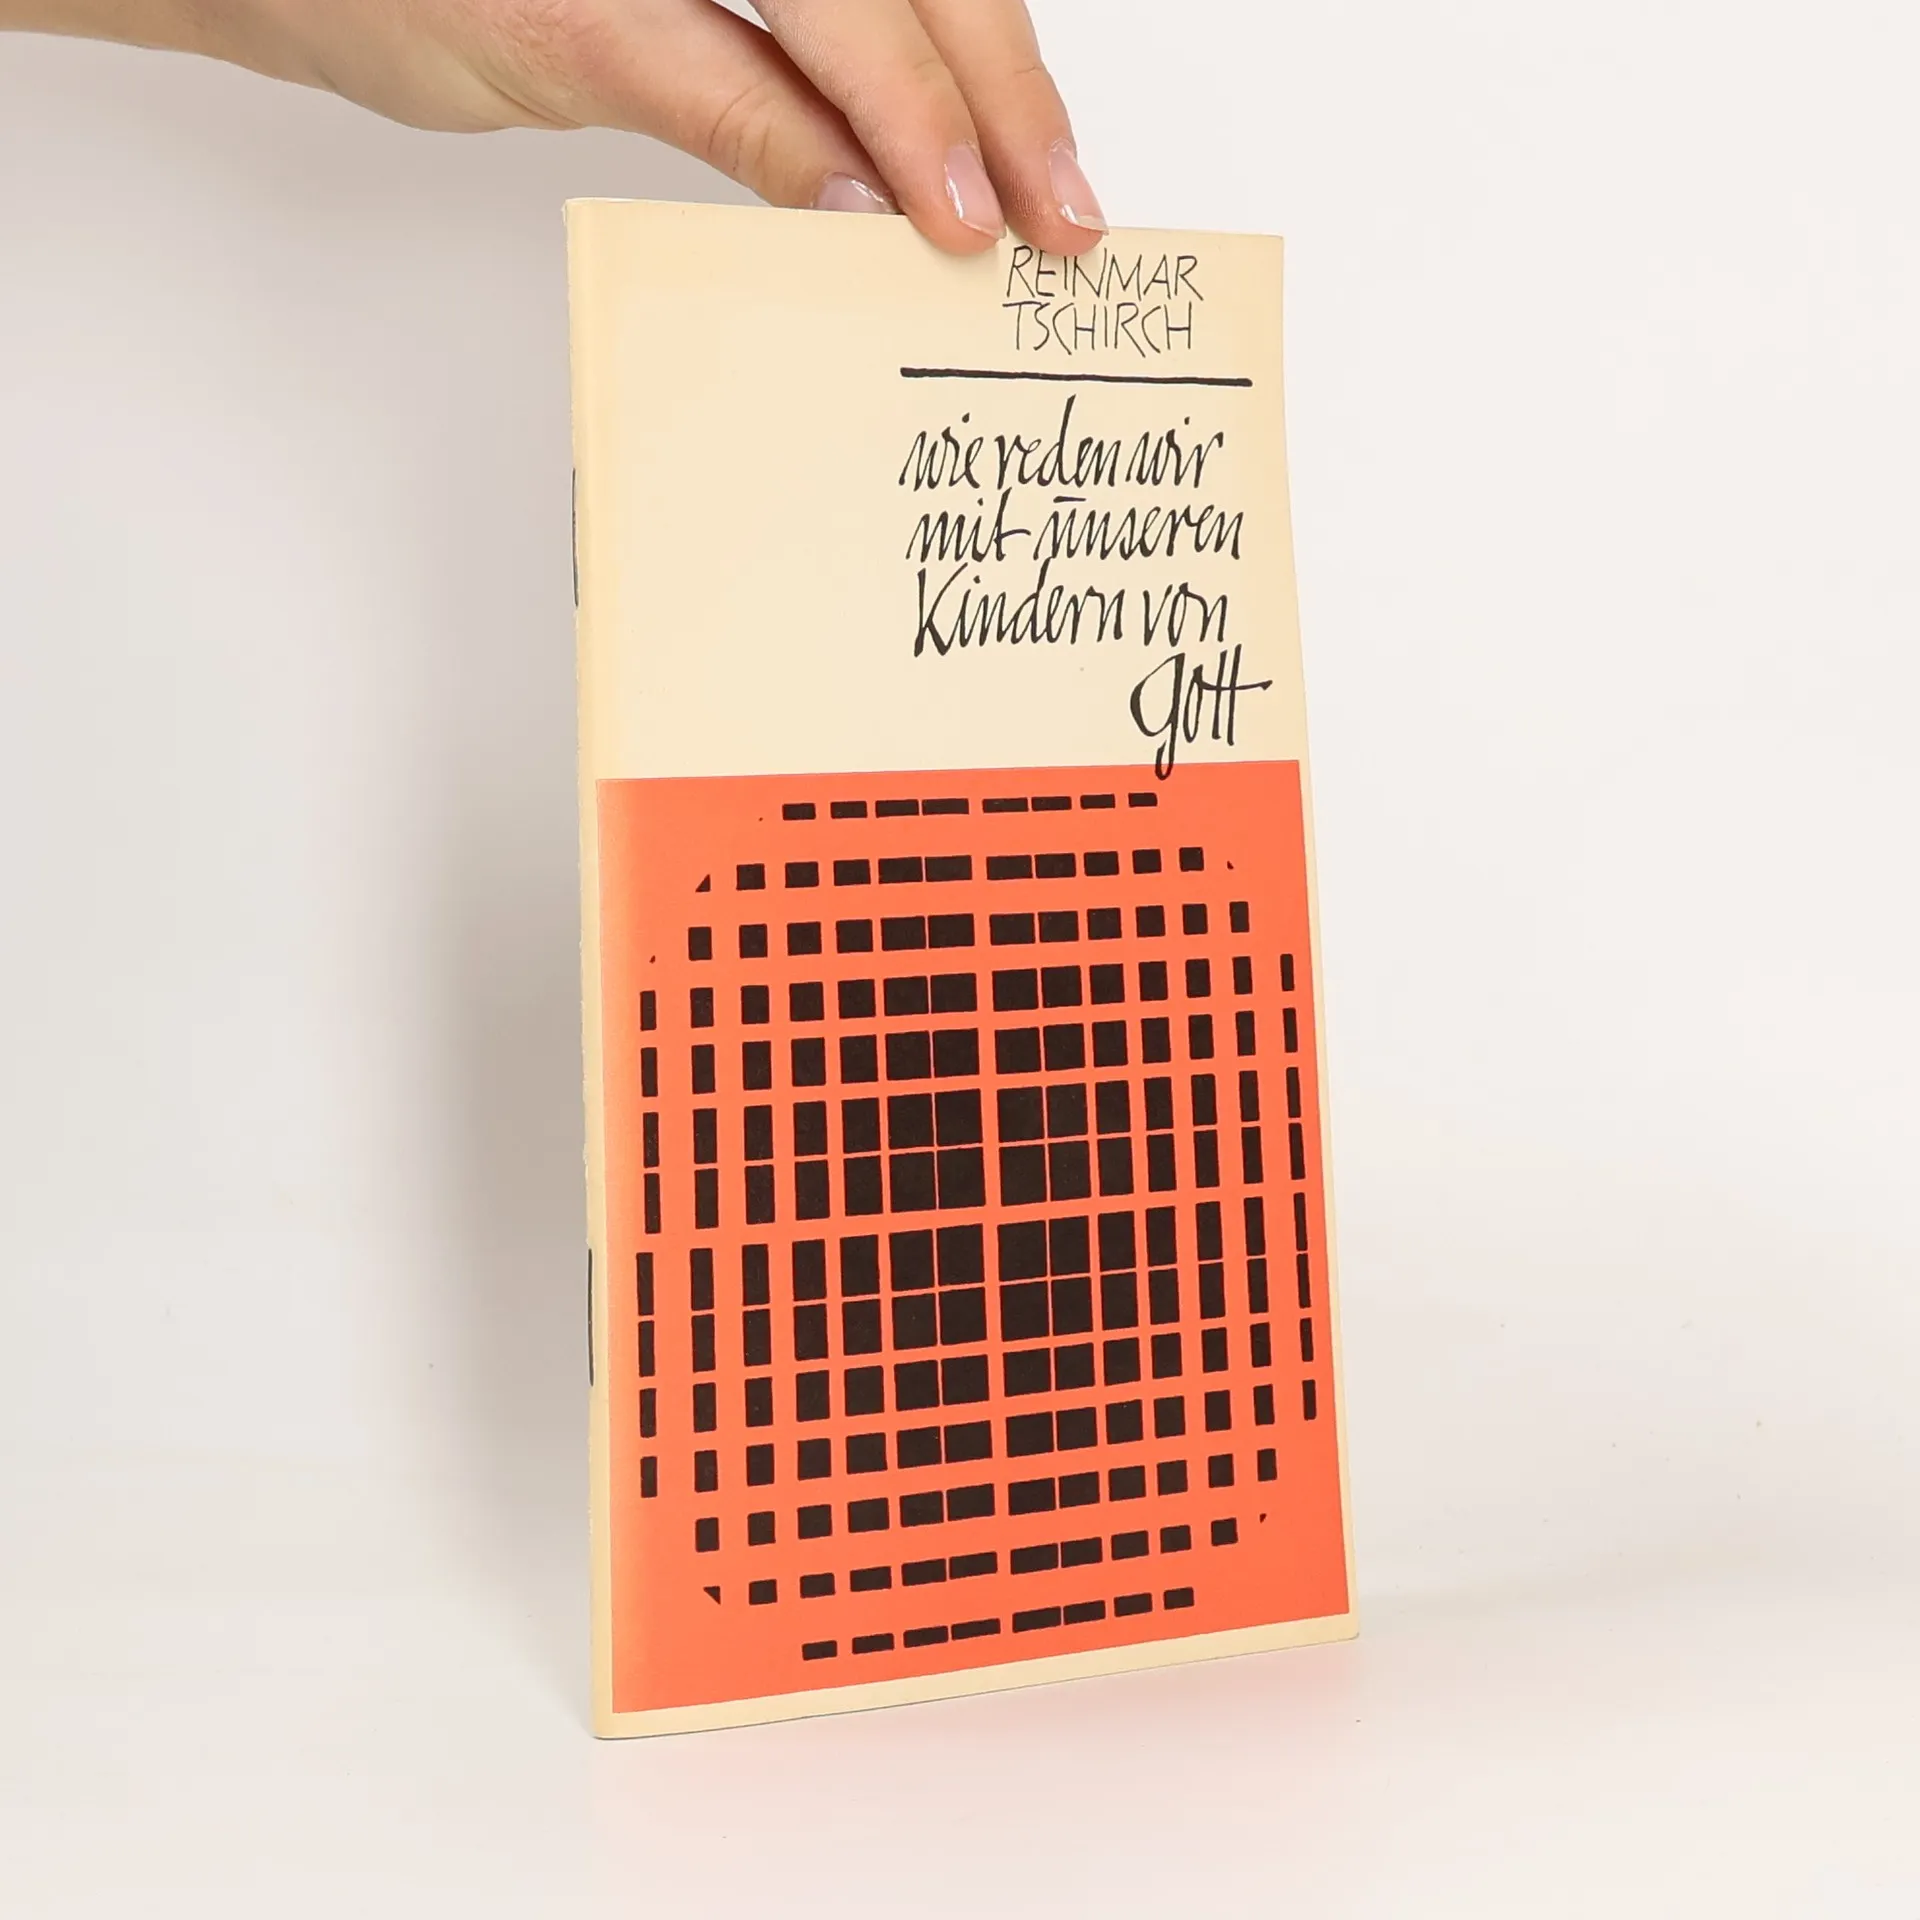 REINMAR
TSCHIRCH
wie reden wir
mit unseren
Kindern von
gott